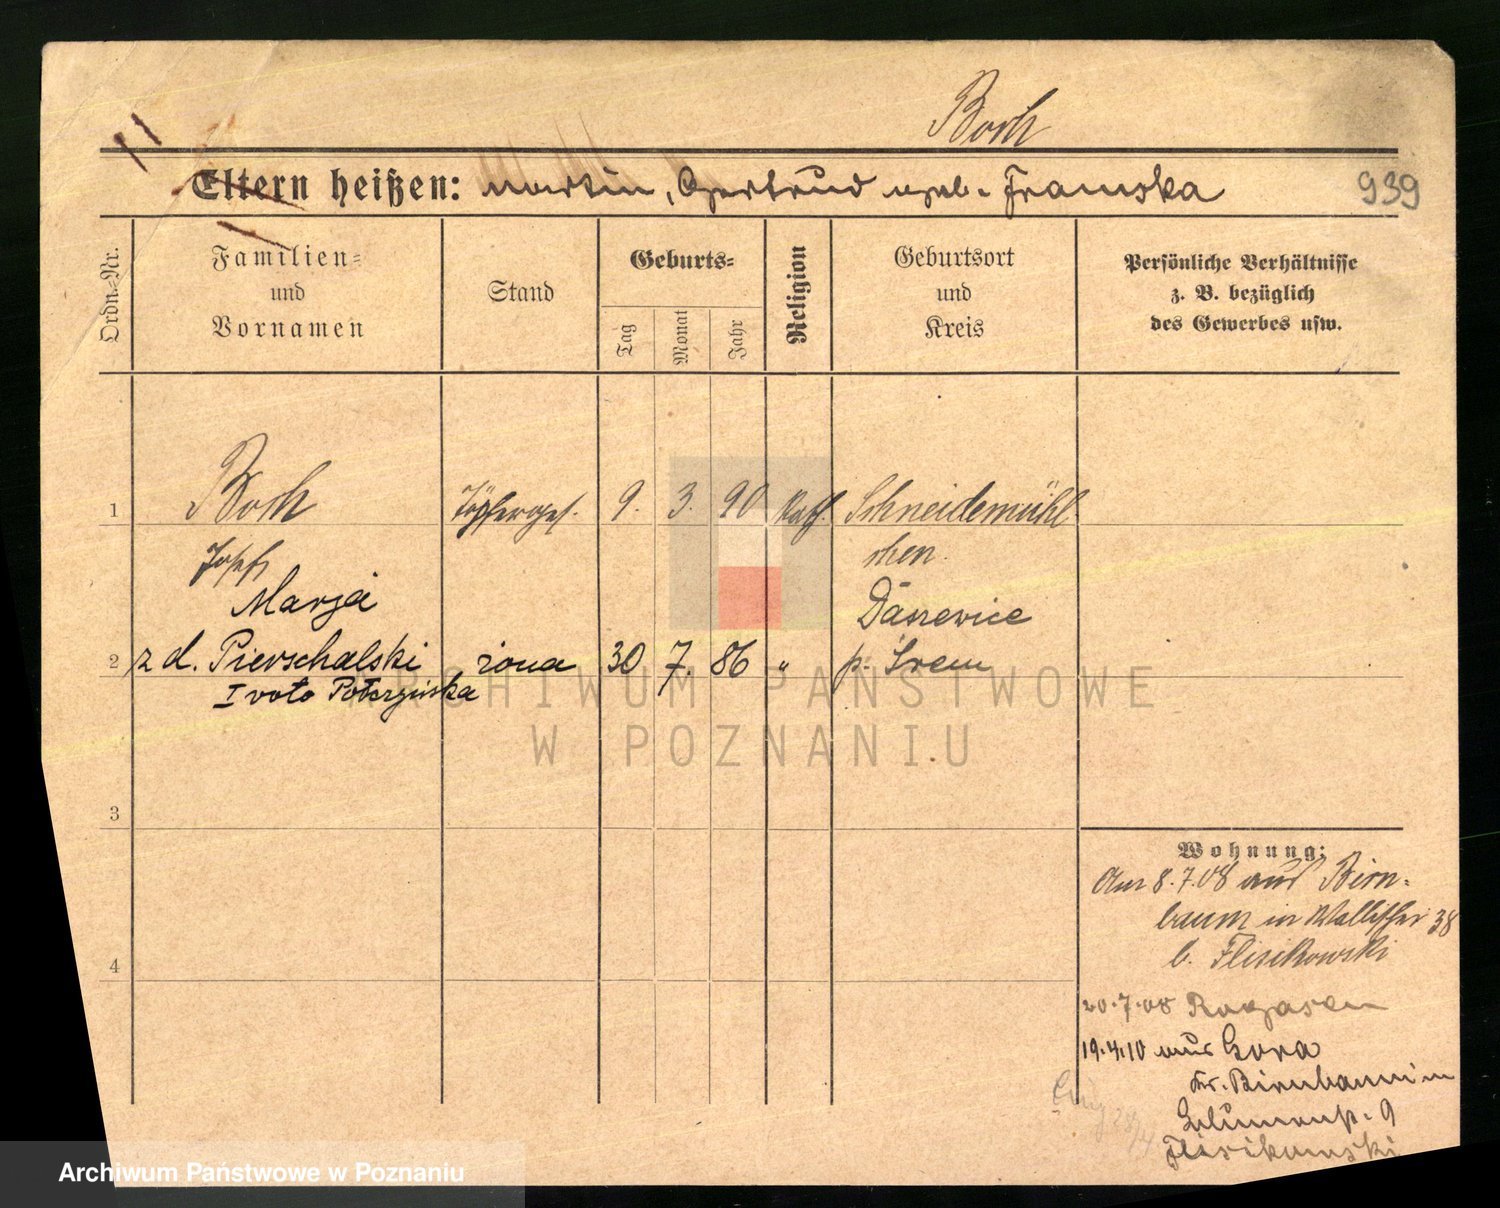 Boch
Eltern heißen: Martin, Gertrud geb. Franuska
939
Ordn.=Nr.
Familien=
und
Vornamen
Stand
Geburts=
Tag
Monat
Jahr
Religion
Geburtsort
und
Kreis
Persönliche Verhältnisse
z. B. bezüglich
des Gewerbes usw.
1
Boch
Töpferges. 9. 3. 90 Kath. Schneidemühl
Josef
chen
Marja
Daszewice
2 z d. Pierschalski żona 30 7. 86 " p. Śrem
I voto
3
4
Wohnung:
Am 8.7.08 aus Birn=
baum in Wallischei 38
b. Flisikowski
20.7.08 Rogasen
19.4.10 aus Gora
Kr. Birnbaum in
9
Flisikowski
ARCHIWUM PAŃSTWOWE
W POZNANIU
Archiwum Państwowe w Poznaniu